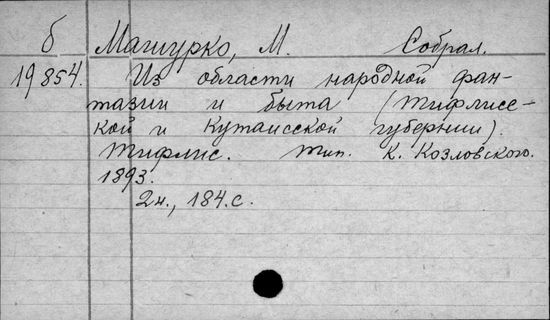 б Машурко, М. Собрал.
19854. Из области народной фан-
тазии и быта (Тифлисс-
кой и Кутаисской губернии).
Тифлис. Тип. К. Козловского.
1893.
2н., 184.с.